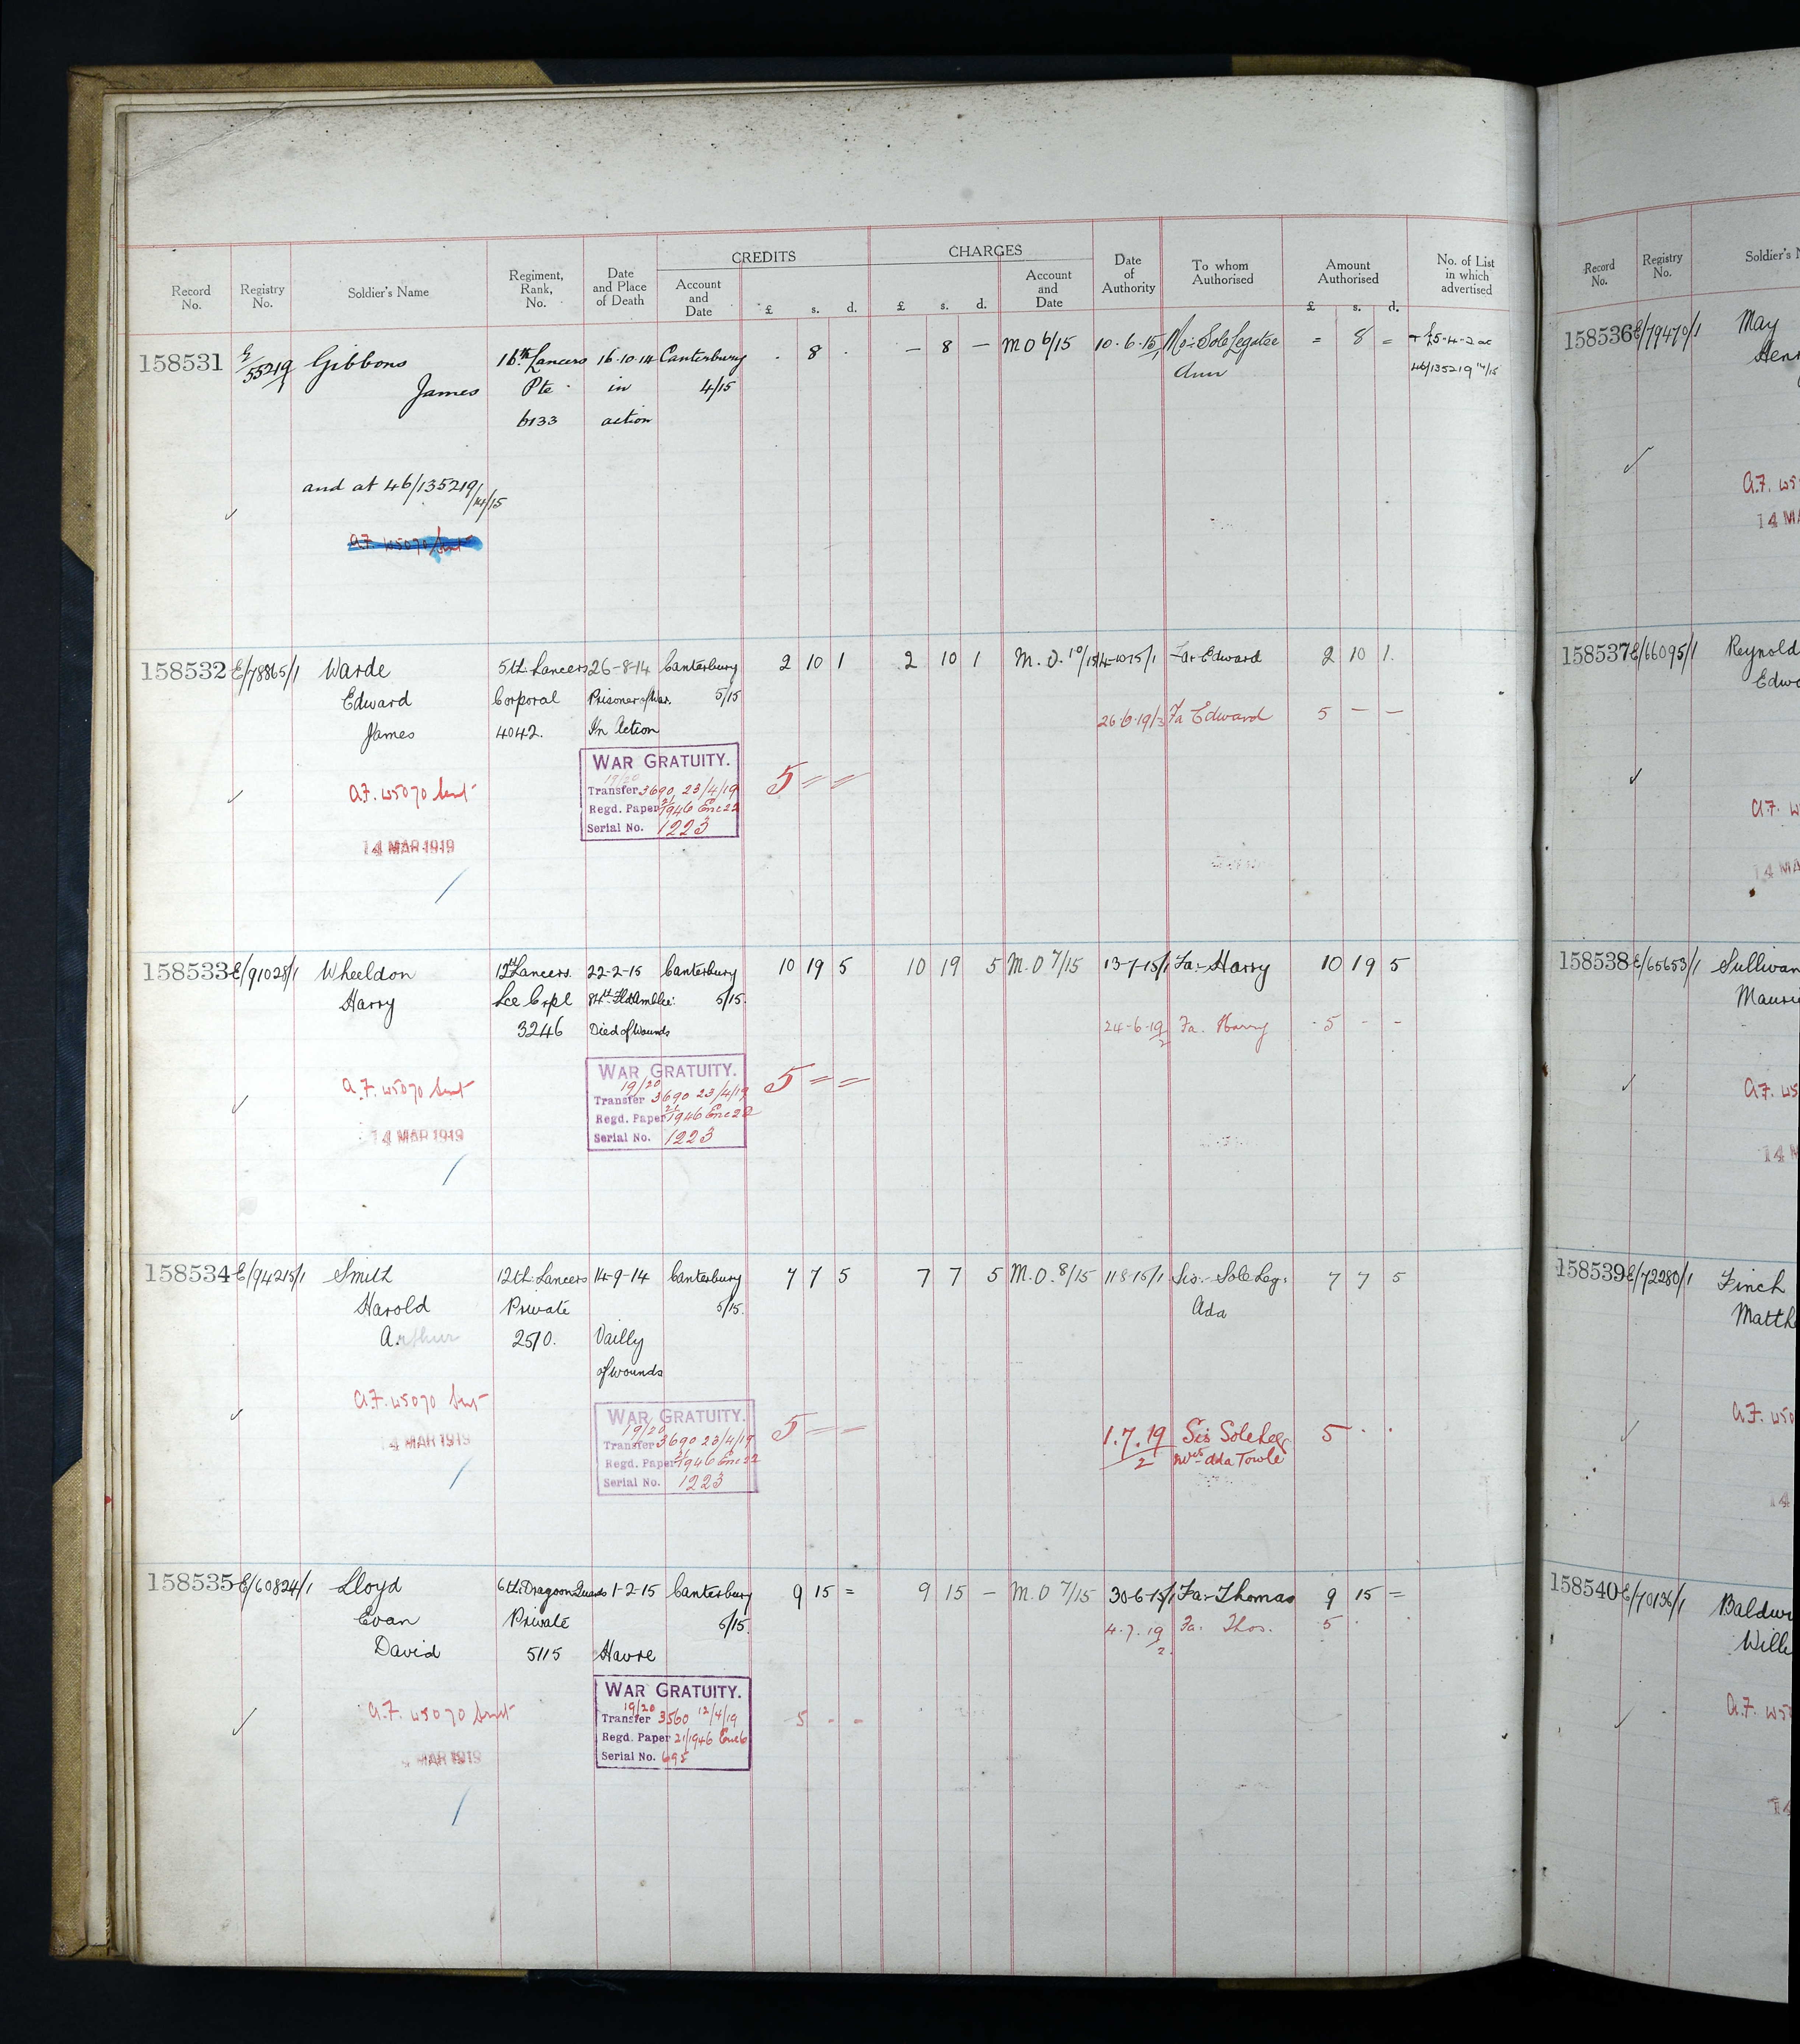 CREDITS CHARGES
Record No. Registry No. Soldier's Name Regiment, Rank, No. Date and Place of Death Account and Date £ s. d. £ s. d. Account and Date Date of Authority To whom Authorised Amount Authorised £ s. d. No. of List in which advertised
158531 E/55219/1 Gibbons 16th Lancers 16.10.14 Canterbury . 8 . — 8 — M O 6/15 10.6.15/1 Mo: Sole Legatee = 8 = + £5-4-2 ac
James Pte in 4/15 Ann 46/135219 14/15
6133 action
and at 46/135219/14/15
A.F. W5070 Sent
158532 E/78865/1 Warde 5th Lancers 26-8-14 Canterbury 2 10 1 2 10 1 M.O. 10/15 14-10-15/1 Fa: Edward 2 10 1.
Edward Corporal Prisoner of War. 5/15
26.6.19/3 Fa Edward 5 — —
James 4042. In Action
WAR GRATUITY.
19/20
A.F. W5070 Sent Transfer 3690 23/4/19 5 = =
Regd. Paper 21/1946 Enc 22
Serial No. 1223
14 MAR 1919
158533 E/91028/1 Wheeldon 12th Lancers 22-2-15 Canterbury 10 19 5 10 19 5 M.O 7/15 13-7-15/1 Fa:- Harry 10 19 5
Harry Lce Crpl 5/15.
3246 Died of Wounds 24-6-19/2 Fa. Harry - 5 - -
WAR GRATUITY.
19/20
A.F. W5070 Sent Transfer 3690 23/4/19 5 = =
Regd. Paper 21/1946 Enc 22
14 MAR 1919 Serial No. 1223
158534 E/94215/1 Smith 12th Lancers 14-9-14 Canterbury 7 7 5 7 7 5 M.O. 8/15 11-8-15/1 Sis:- Sole Leg: 7 7 5
Harold Private 5/15. Ada
Arthur 2510. Vailly
of wounds
A.F. W5070 Sent WAR GRATUITY. 5 — —
19/20 1.7.19/2 Sis Sole Leg 5 . .
14 MAR 1919 Transfer 3690 23/4/19 Mrs Ada Towle
Regd. Paper 21/1946 Enc 22
Serial No. 1223
158535 E/60824/1 Lloyd 6th Dragoon Guards 1-2-15 Canterbury 9 15 = 9 15 — M.O 7/15 30-6-15/1 Fa:- Thomas 9 15 =
Evan Private 5/15. 4.7.19/2. Fa. Thos. 5 . .
David 5115 Havre
WAR GRATUITY.
19/20
A.F. W5070 Sent Transfer 3560 12/4/19 5 - -
Regd. Paper 21/1946 Enc 6
Serial No. 695
MAR 1919
Record No. Registry No. Soldier's
158536 E/79470/1 May
A.F. W5
14 MA
158537 E/66095/1 Reynold
Edwa
A.F. W
14 MA
158538 E/65653/1 Sullivan
Mauri
A.F. W5
14 M
158539 E/72280/1 Finch
Matth
A.F. W50
14
158540 E/70136/1 Baldwi
Wille
A.F. W50
14